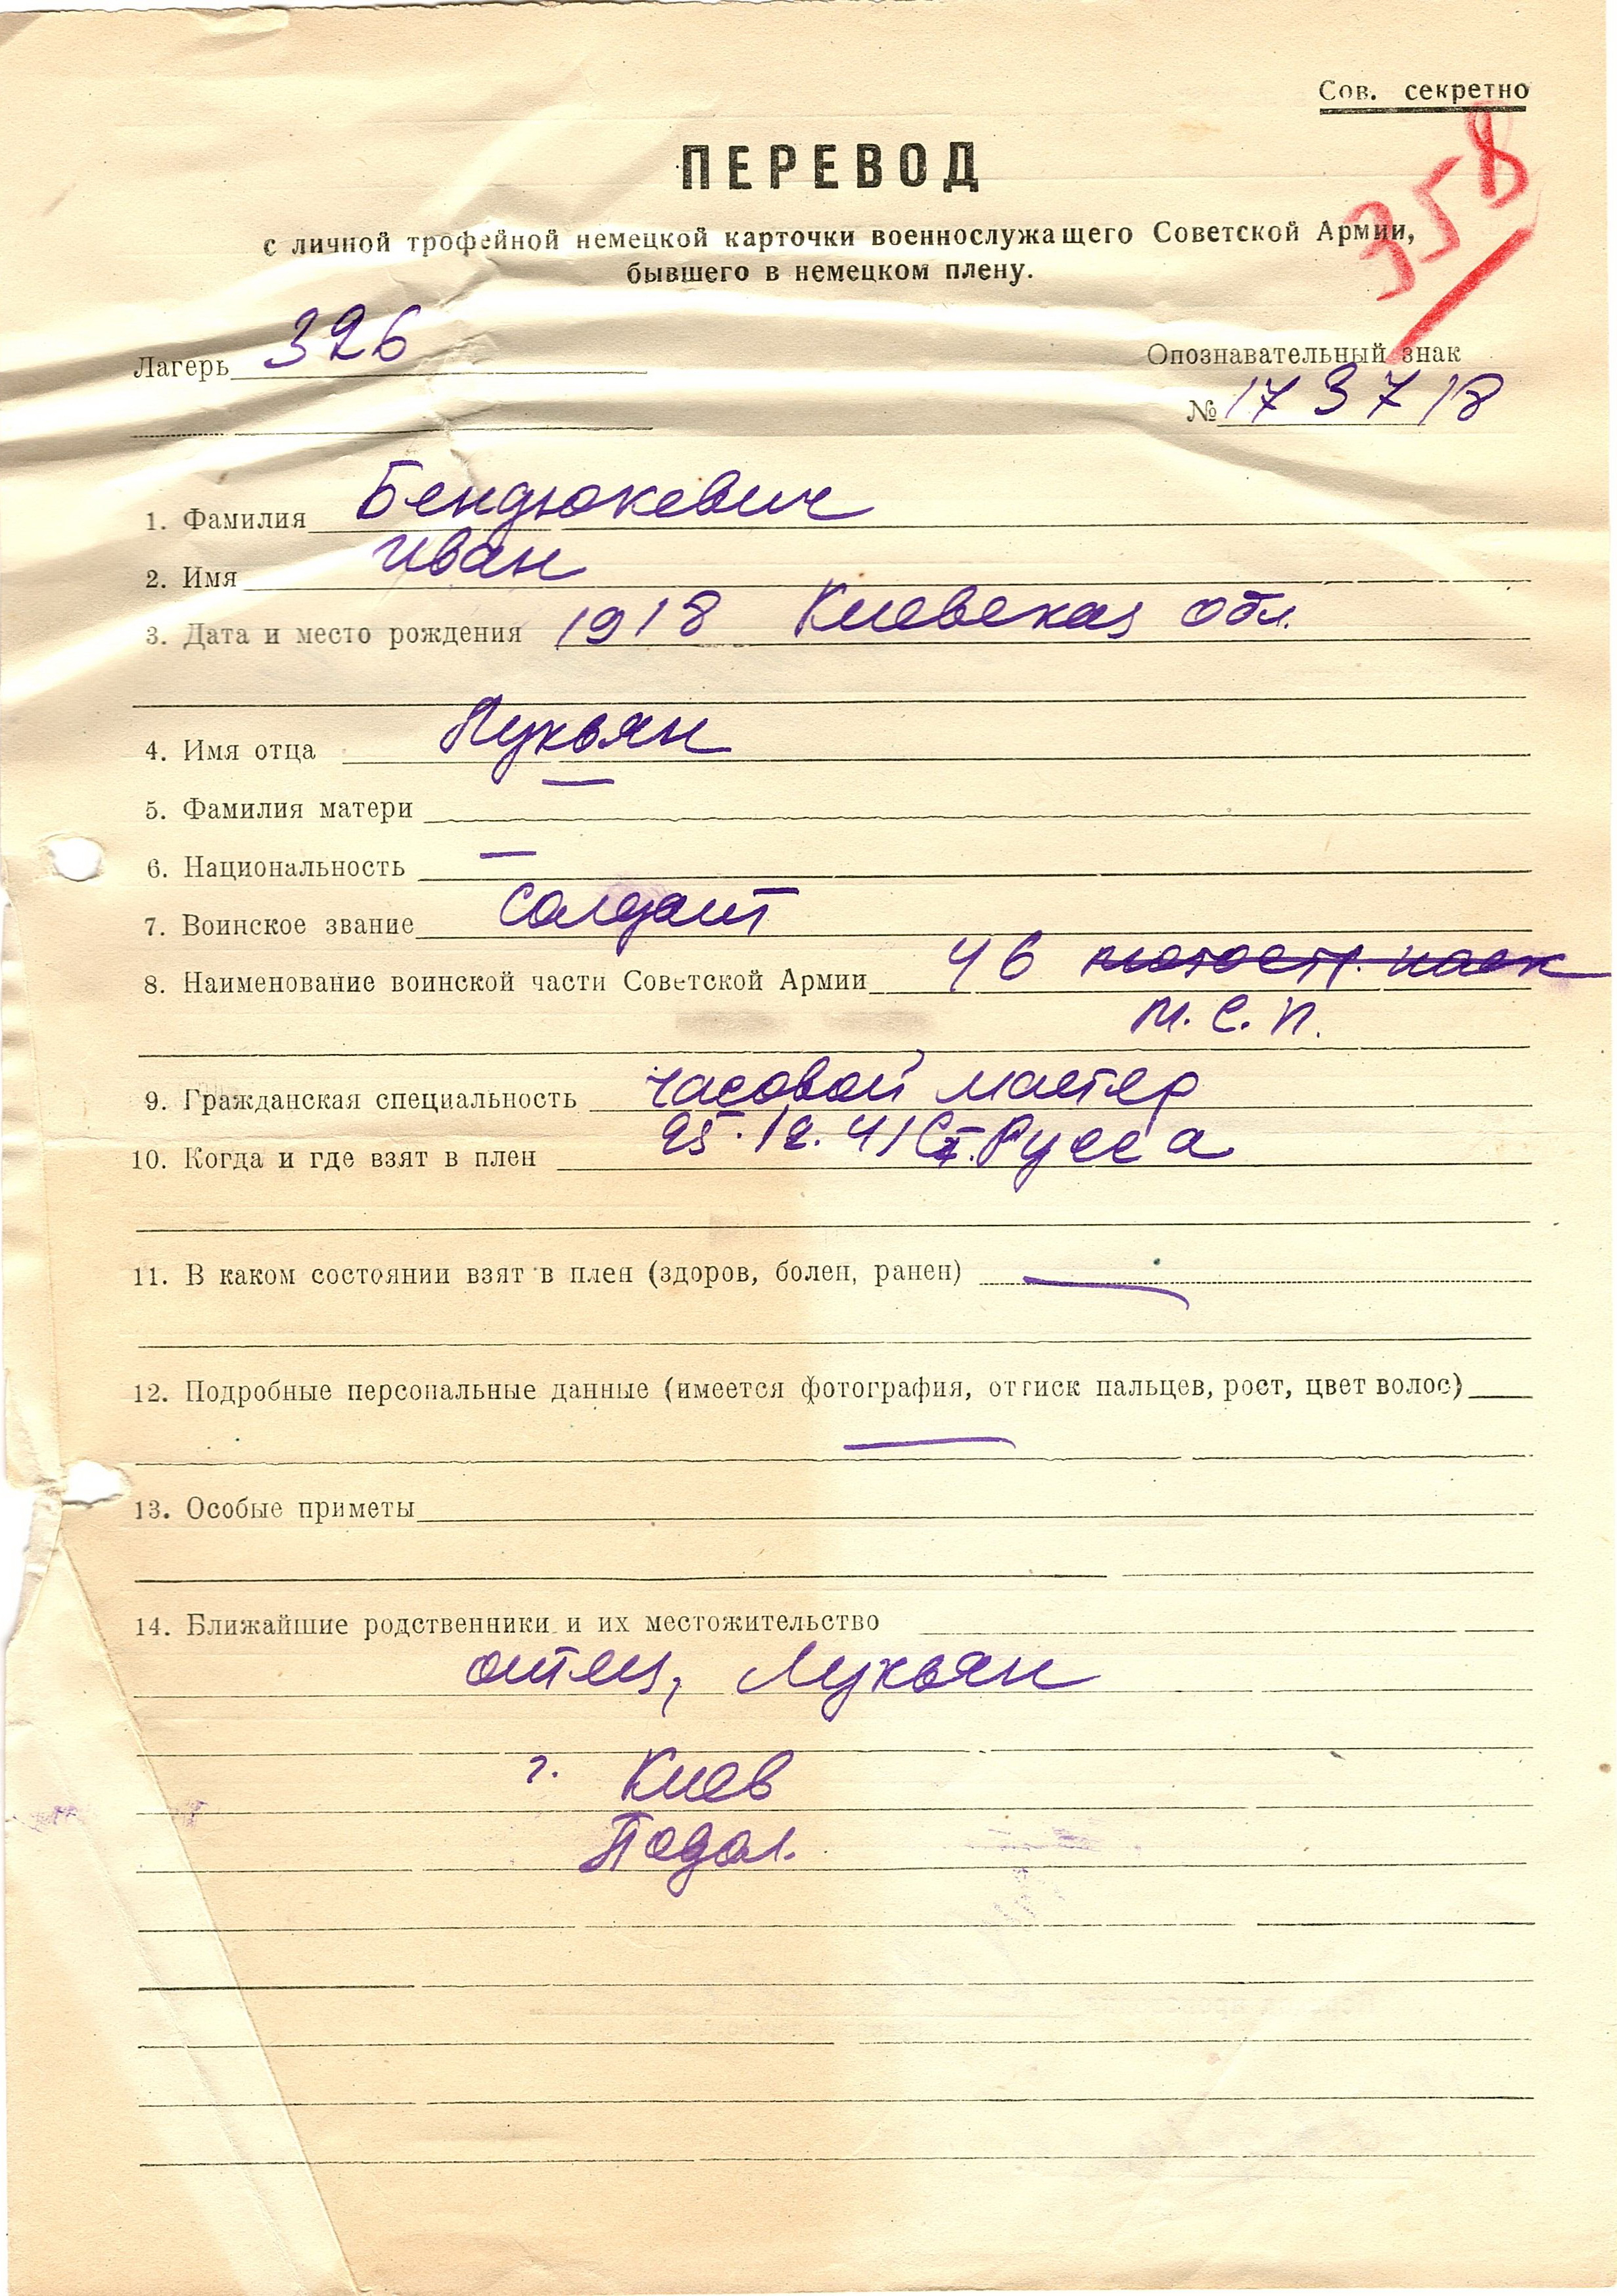 Сов. секретно
358
ПЕРЕВОД
с личной трофейной немецкой карточки военнослужащего Советской Армии,
бывшего в немецком плену.
Лагерь 326
Опознавательный знак
№ 173718
1. Фамилия Бендюкевич
2. Имя Иван
3. Дата и место рождения 1918 Киевская обл.
4. Имя отца Лукьян
5. Фамилия матери —
6. Национальность —
7. Воинское звание Солдат
8. Наименование воинской части Советской Армии 46
М.С.П.
9. Гражданская специальность часовой мастер
10. Когда и где взят в плен 25.12.41 Ст. Русса
11. В каком состоянии взят в плен (здоров, болен, ранен) —
12. Подробные персональные данные (имеется фотография, оттиск пальцев, рост, цвет волос)
—
13. Особые приметы
14. Ближайшие родственники и их местожительство
отец, Лукьян
г. Киев
Подол.